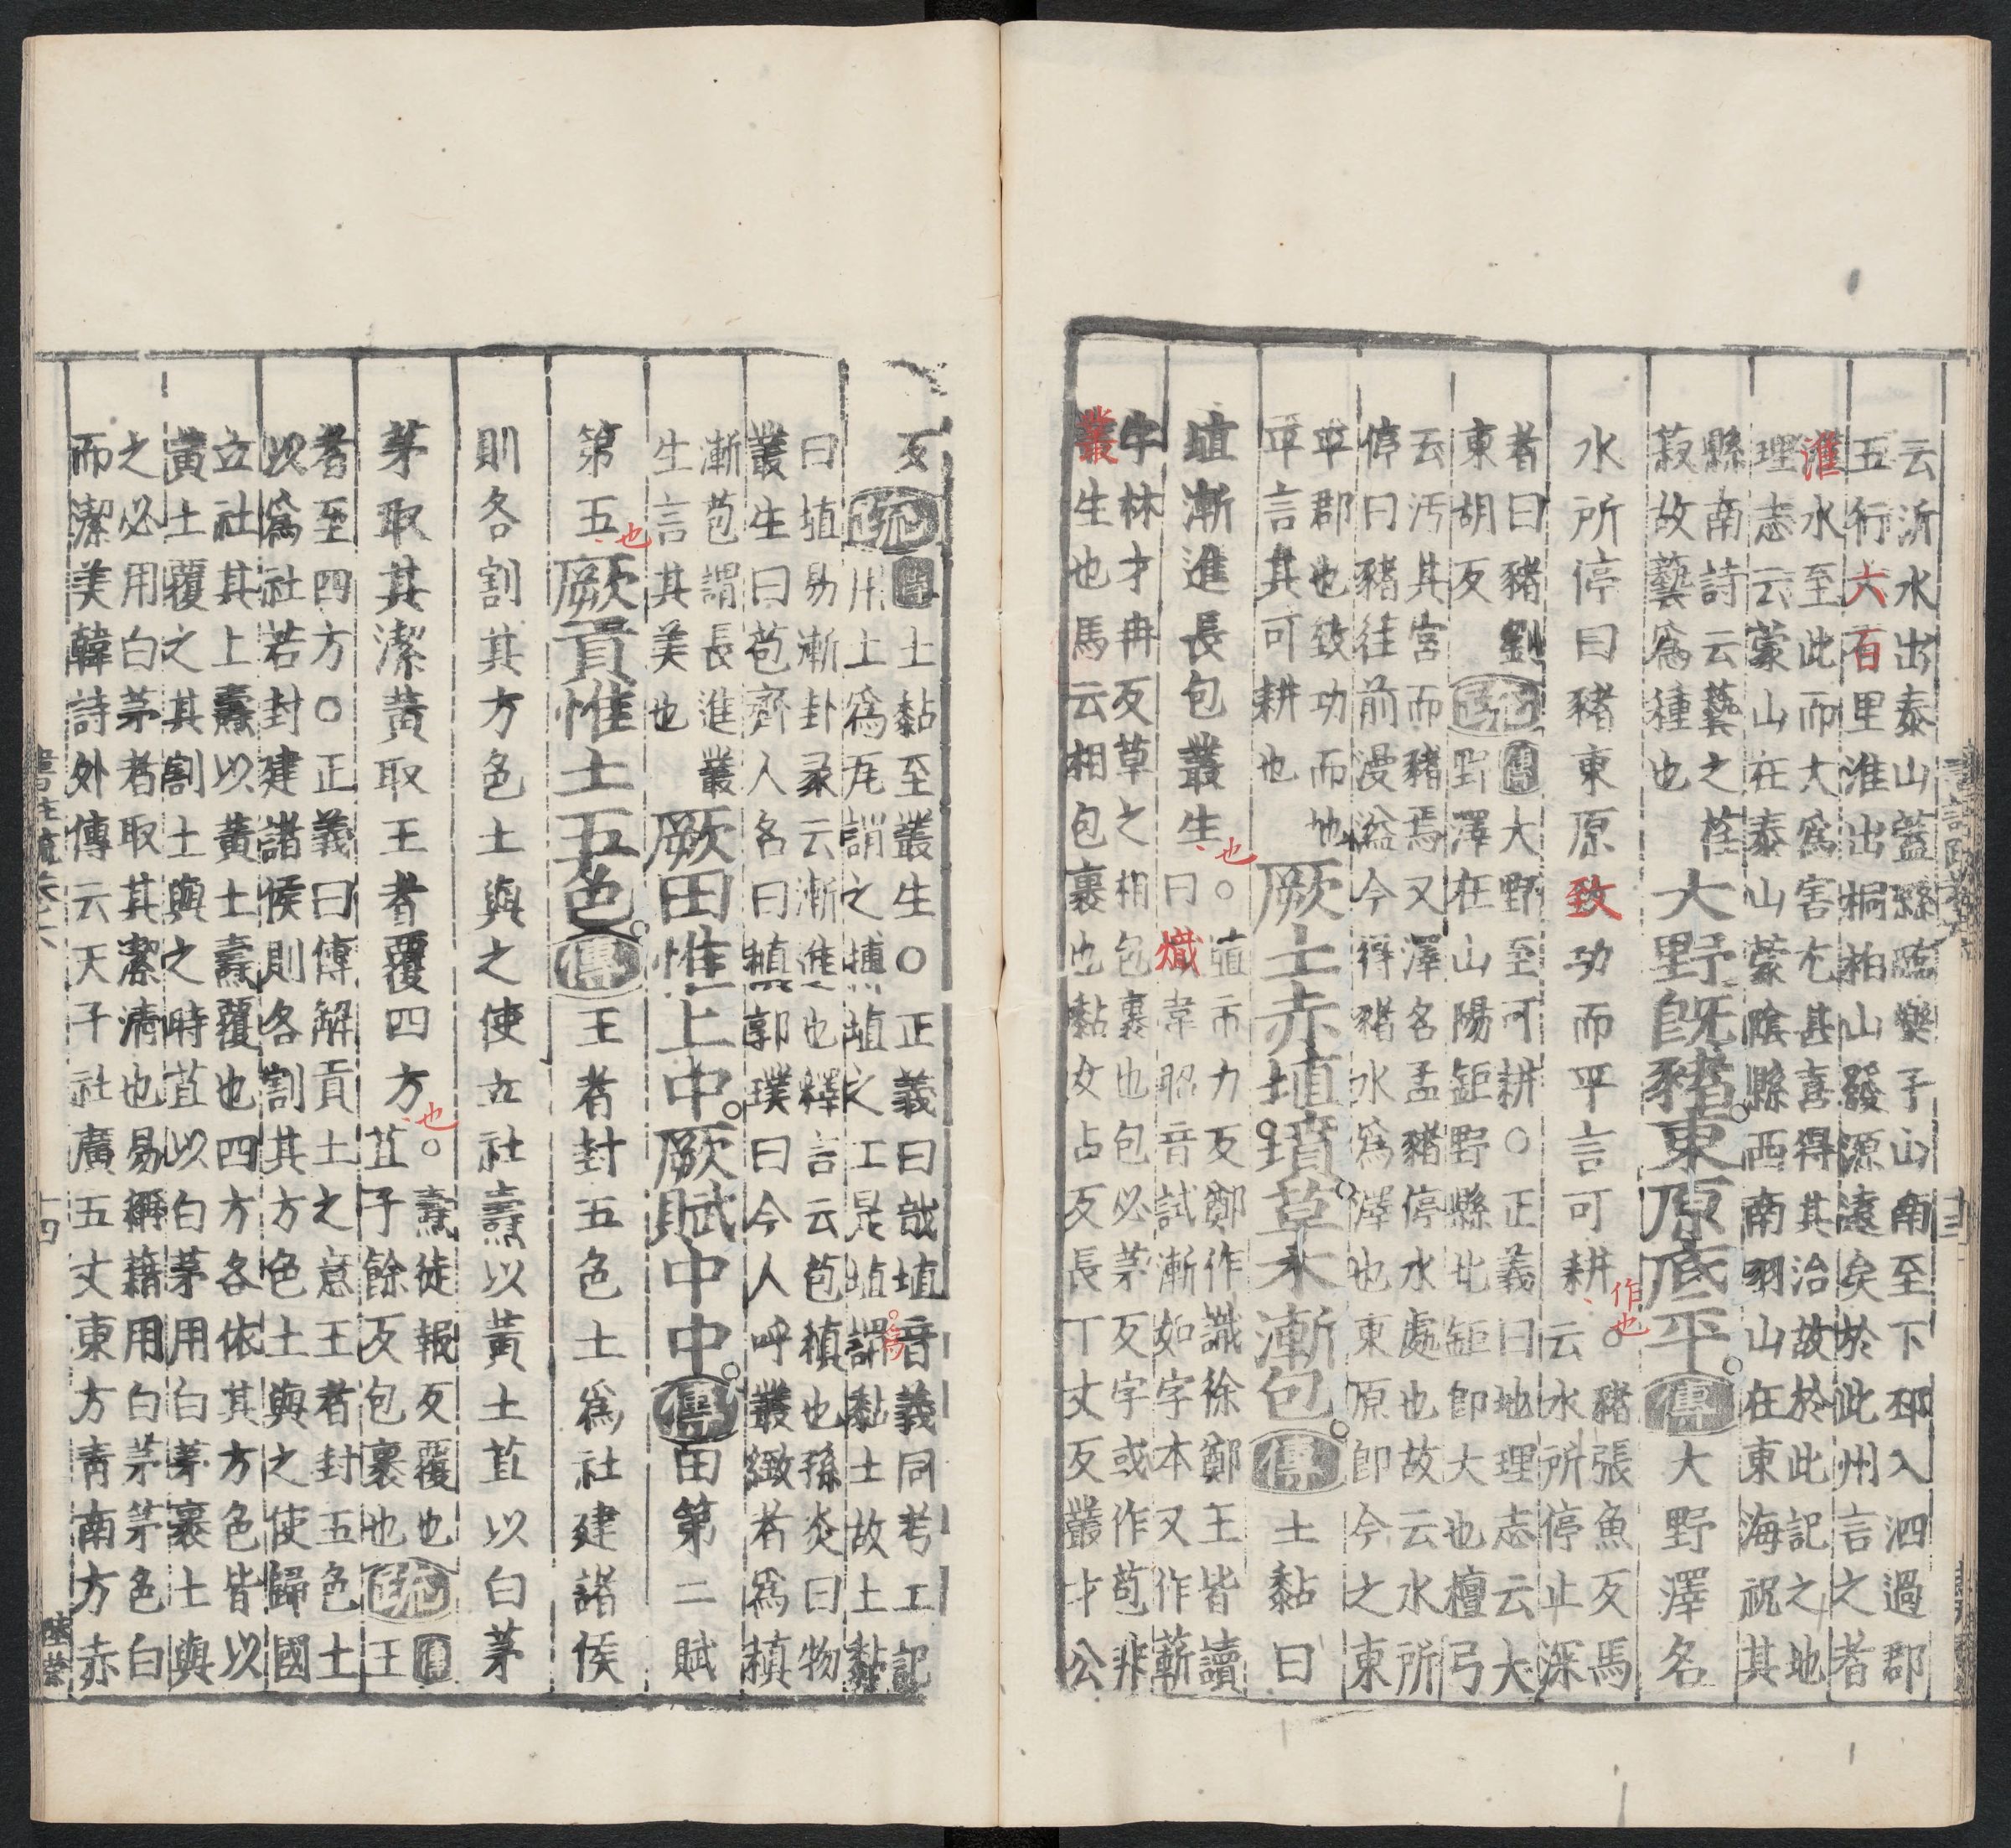 云沂水出泰山蓋縣臨樂子山南至下邳入泗過郡
五行六百里淮出桐柏山發源遠矣於此州言之者
淮水至此而大爲害尤甚喜得其治故於此記之地
理志云蒙山在泰山蒙陰縣西南羽山在東海祝其
縣南詩云藝之荏
菽故藝爲種也
大野既豬東原底平傳大野澤名
水所停曰豬東原致功而平言可耕
作也
豬張魚反馬
云水所停止深
者曰豬劉
東胡反
疏傳大野至可耕○正義曰地理志云大
野澤在山陽鉅野縣北鉅即大也檀弓
云汚其宮而豬焉又澤名孟豬停水處也故云水所
停曰豬往前漫溢今得豬水爲澤也東原即今之東
平郡也致功而地
平言其可耕也
厥土赤埴墳草木漸包傳土黏曰
埴漸進長包叢生
也
○埴市力反鄭作𢧵徐鄭王皆讀
曰熾韋昭音試漸如字本又作蔪
字林才冉反草之相包裹也包必茅反字或作苞非
叢生也馬云相包裹也黏女占反長丁丈反叢才公
反疏傳土黏至叢生○正義曰哉埴音義同考工記
用土爲瓦謂之摶埴之工是埴謂黏土故土黏
爲
曰埴易漸卦彖云漸進也釋言云苞稹也孫炎曰物
叢生曰苞齊人名曰稹郭璞曰今人呼叢緻者爲稹
漸苞謂長進叢
生言其美也
厥田惟上中厥賦中中傳田第二賦
第五
也
厥貢惟土五色傳王者封五色土爲社建諸侯
則各割其方色土與之使立社燾以黃土苴以白茅
茅取其潔黃取王者覆四方
也
○燾徒報反覆也
苴子餘反包裹也
疏傳王
者至四方○正義曰傳解貢土之意王者封五色土
以爲社若封建諸侯則各割其方色土與之使歸國
立社其上燾以黃土燾覆也四方各依其方色皆以
黃土覆之其割土與之時苴以白茅用白茅裹土與
之必用白茅者取其潔清也易稱藉用白茅茅色白
而潔美韓詩外傳云天子社廣五丈東方青南方赤
十四
陸榮